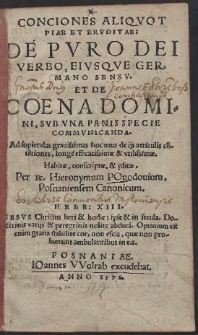 CONCIONES ALIQVOT
PIAE ET ERVDITAE:
DE PVRO DEI
VERBO, EIVSQVE GER-
MANO SENSV.
ET DE
COENA DOMI-
NI, SVB VNA PANIS SPECIE
COMMVNICANDA.
Ad sopiendas gravissimas hoc anno de iis articulis cō-
tentiones, longè efficacissimæ & vtilissimæ.
Habitæ, conscriptæ, & editæ.
Per R. Hieronymum POuodouium,
Posnaniensem Canonicum.
HEBR: XIII.
IESVS Christus heri & hodie: ipse & in secula. Do-
ctrinis variis & peregrinis nolite abduci. Optimum est
enim gratia stabilire cor, non escis, quæ non pro-
fuerunt ambulantibus in eis.
POSNANIAE.
IOannes VVolrab excudebat.
ANNO 1578.